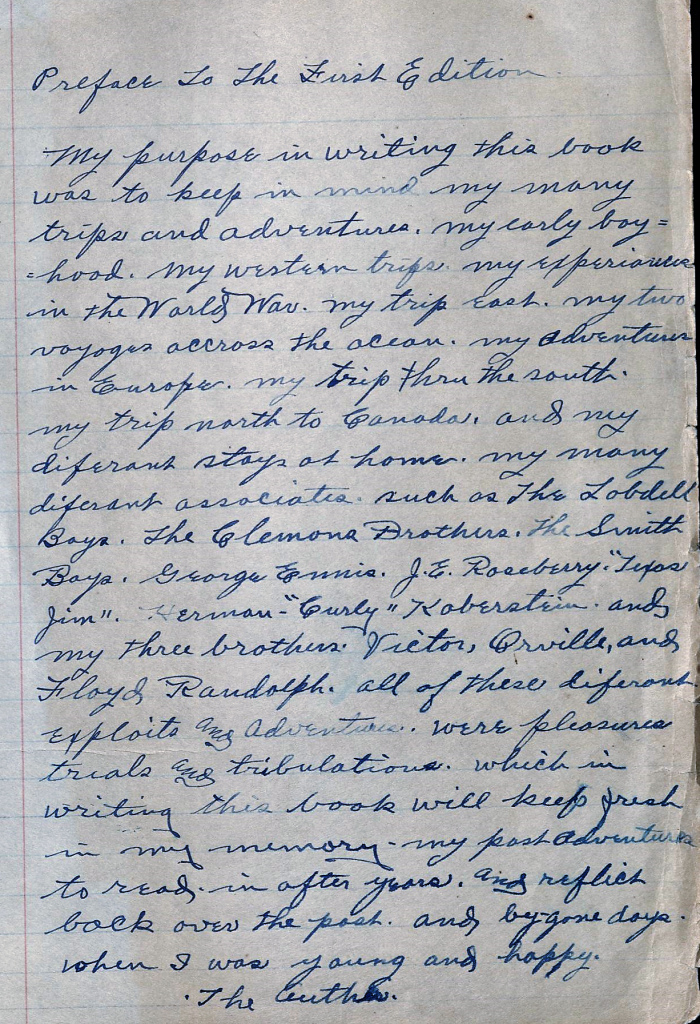 Preface To The First Edition
My purpose in writing this book
was to keep in mind my many
trips and adventures. my early boy=
=hood. My western trips. my experiances
in the World War. my trip east. my two
voyages accross the ocean. my adventures
in Europe. my trip thru the south.
my trip north to Canada. and my
diferant stays at home. my many
diferant associates. such as The Lobdell
Boys. The Clemons Brothers. The Smith
Boys. George Ennis. J.E. Roseberry-"Texas
Jim". Herman-"Curly" Koberstein. and
my three brothers. Victor, Orville, and
Floyd Randolph. all of these diferant
exploits and adventures. were pleasures
trials and tribulations. which in
writing this book will keep fresh
in my memory- my past adventures
to read. in after years. and reflict
back over the past. and by-gone days.
when I was young and happy.
. The Author.